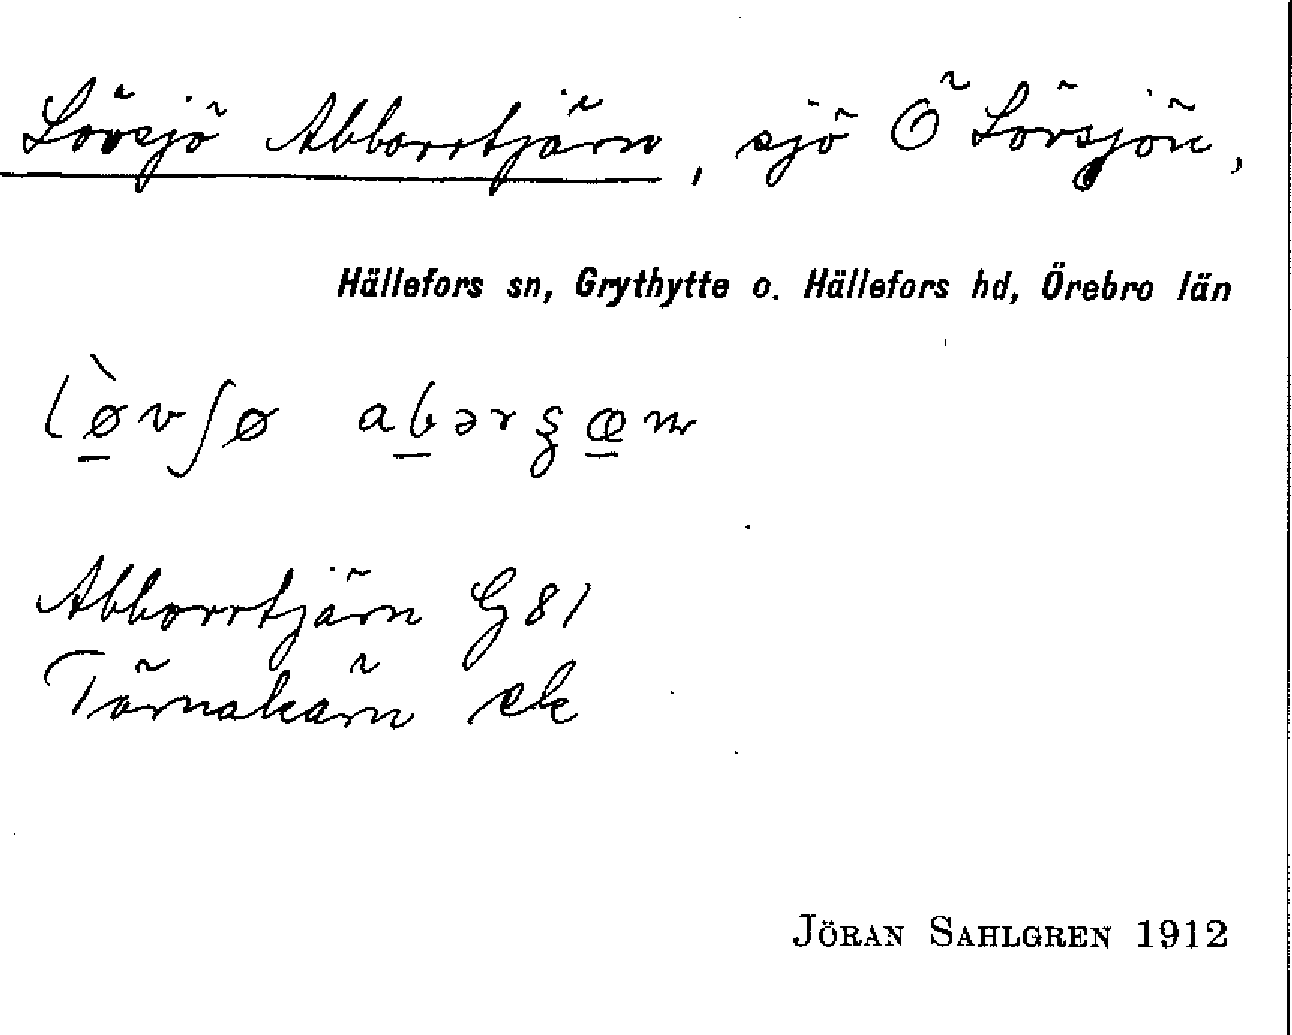 Lövsjö Abborrtjärn, sjö Ö Lövsjön,
Hällefors sn, Grythytte o. Hällefors hd, Örebro län
lø̀vʃø abərʒœn
Abborrtjärn G 81
Tärnakärn sk
JÖRAN SAHLGREN 1912